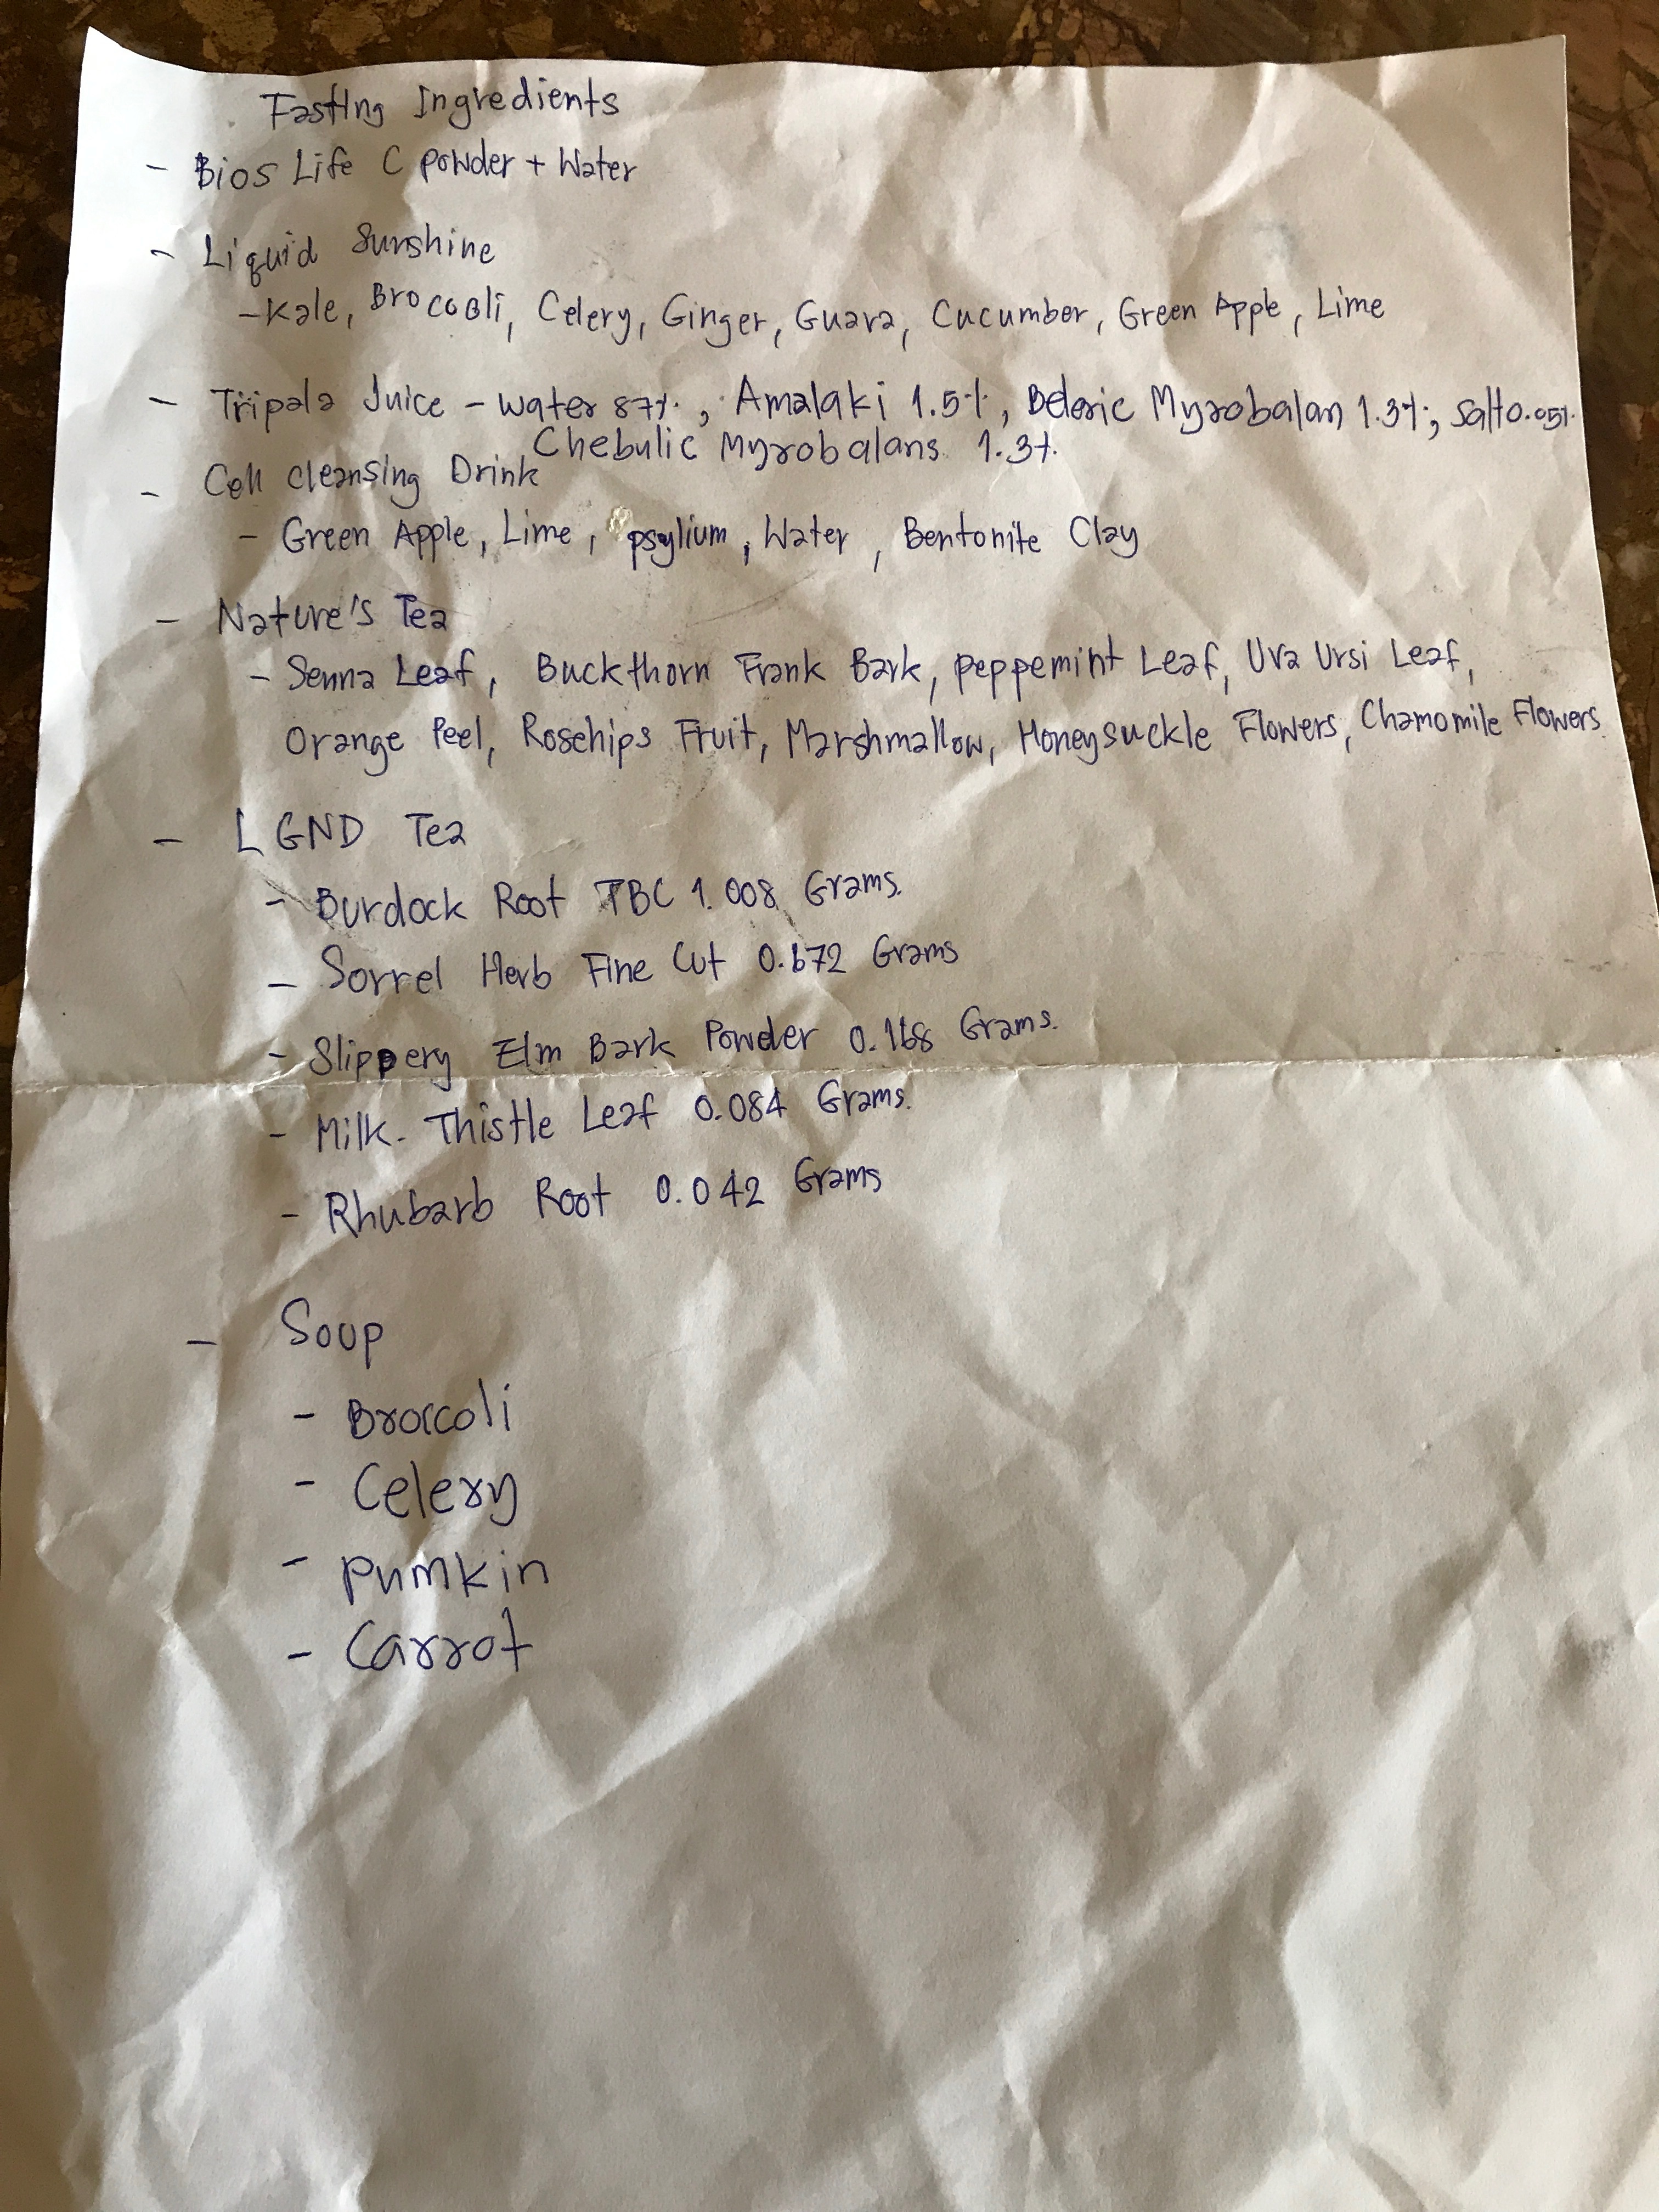 Fasting Ingredients
- Bios Life C powder + Water
- Liquid Sunshine
- Kale, Broccoli, Celery, Ginger, Guava, Cucumber, Green Apple, Lime
- Tripala Juice - Water 87%, Amalaki 1.5%, Beleric Myrobalan 1.3%, Salt 0.05%
Chebulic Myrobalans 1.3%
- Cell cleansing Drink
- Green Apple, Lime, psylium, Water, Bentonite Clay
- Nature's Tea
- Senna Leaf, Buckthorn Frank Bark, peppemint Leaf, Uva Ursi Leaf,
Orange Peel, Rosehips Fruit, Marshmallow, Honeysuckle Flowers, Chamomile Flowers.
- LGND Tea
- Burdock Root TBC 1.008 Grams.
- Sorrel Herb Fine Cut 0.672 Grams
- Slippery Elm Bark Powder 0.168 Grams.
- Milk-Thistle Leaf 0.084 Grams.
- Rhubarb Root 0.042 Grams
- Soup
- Broccoli
- Celery
- Pumkin
- Carrot